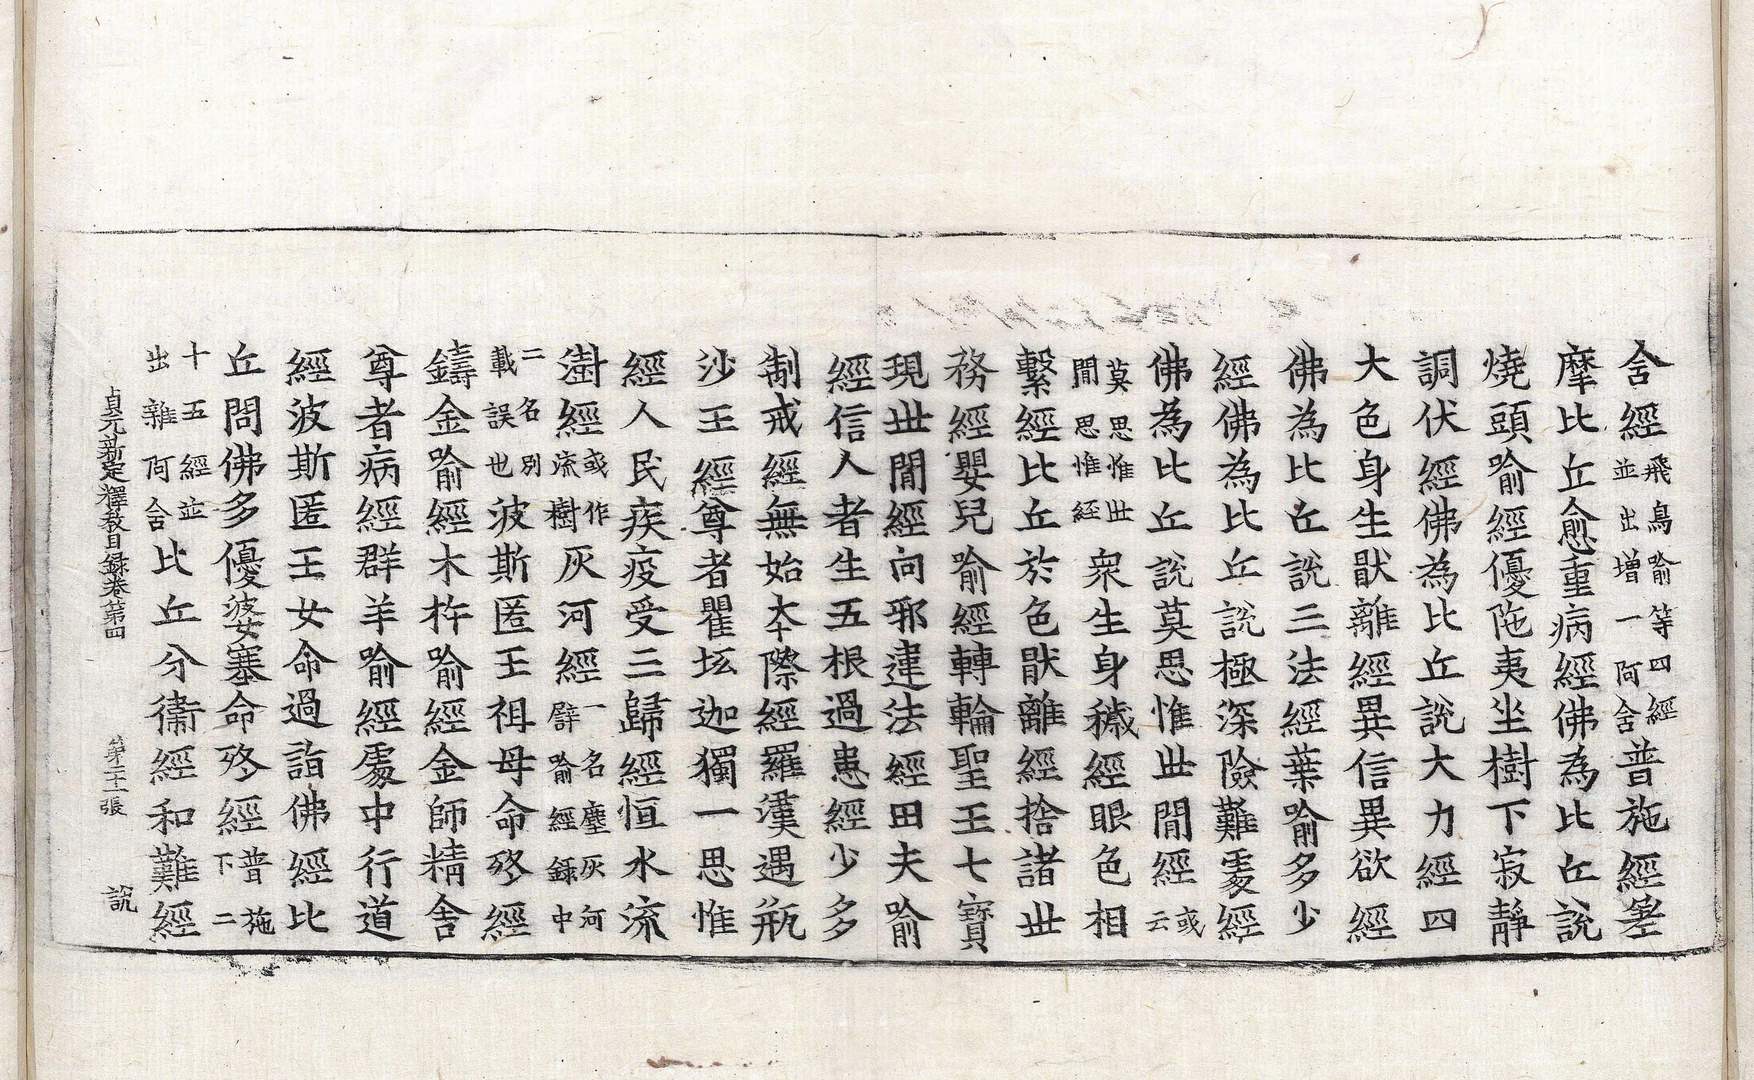 舍經飛鳥喻等四經並出增一阿含普施經差
摩比丘愈重病經佛為比丘說
燒頭喻經優陁夷坐樹下寂靜
調伏經佛為比丘說大力經四
大色身生猒離經異信異欲經
佛為比丘說三法經葉喻多少
經佛為比丘說極深險難處經
佛為比丘說莫思惟世閒經或云
莫思惟世閒思惟経衆生身穢經眼色相
繫經比丘於色猒離經捨諸世
務經嬰兒喻經轉輪聖王七寶
現世閒經向邪違法經田夫喻
經信人者生五根過患經少多
制戒經無始本際經羅漢遇瓶
沙王經尊者瞿㘵迦獨一思惟
經人民疾疫受三歸經恒水流
澍經或作流樹灰河經一名塵灰河譬喻經錄中
二名別載誤也波斯匿王祖母命終經
鑄金喻經木杵喻經金師精舍
尊者病經群羊喻經處中行道
經波斯匿王女命過詣佛經比
丘問佛多優婆塞命終經普施下二
十五經並出雜阿含比丘分衛經和難經
貞元新定釋教目録卷第四 第二十一張 說